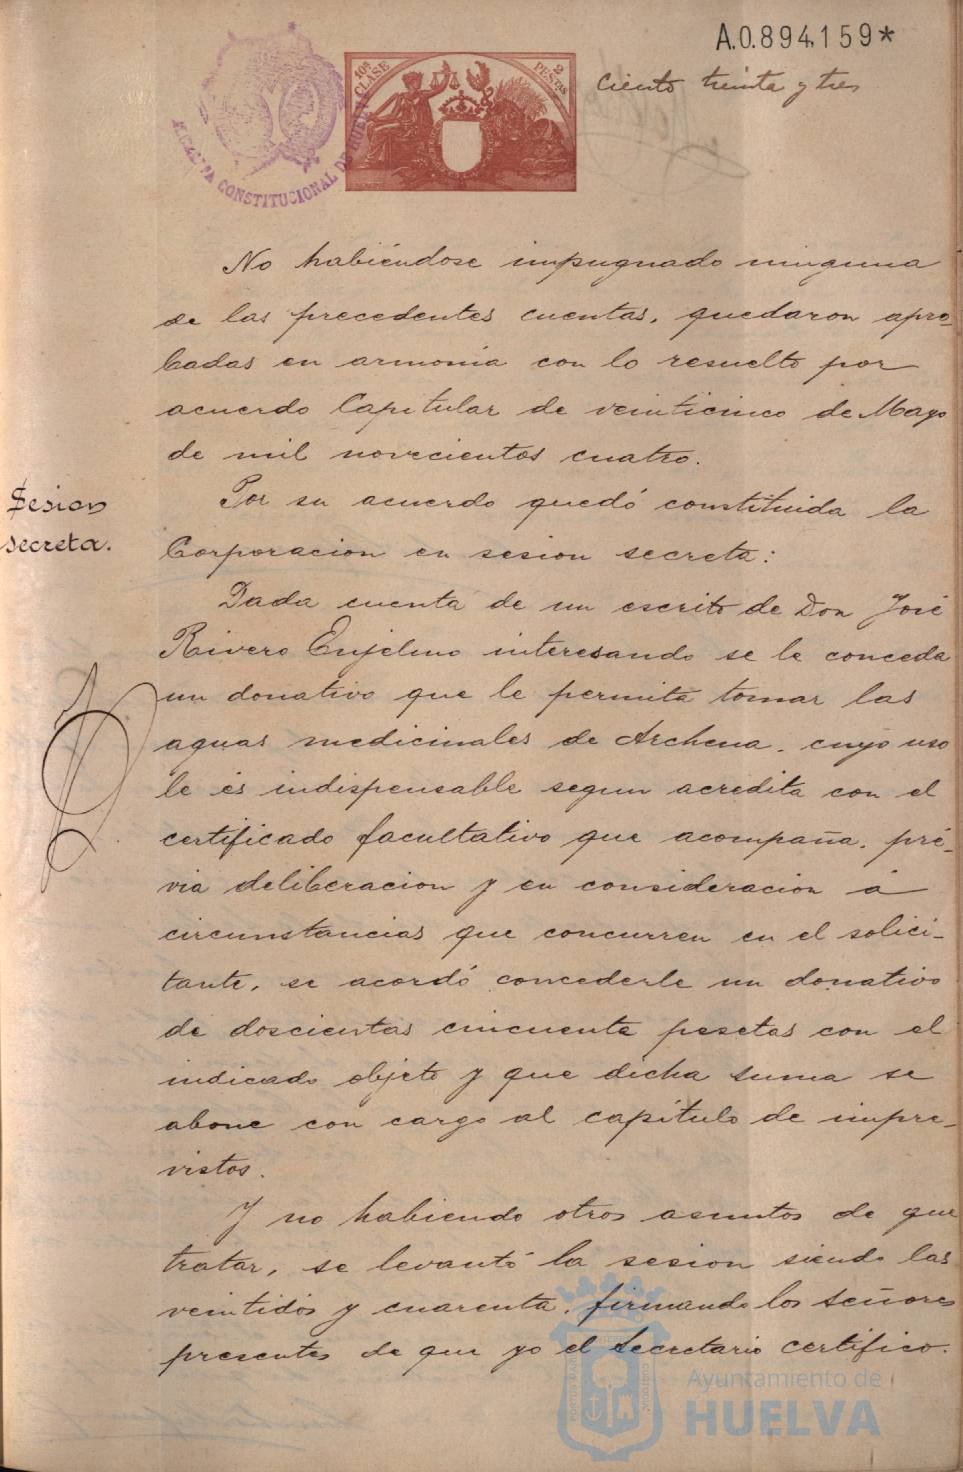 A.0.894,159*
Ciento treinta y tres
10ª CLASE
2 PESETAS
CONSTITUCIONAL DE HUELVA
No habiéndose impugnado ninguna
de las precedentes cuentas, quedaron apro-
badas en armonia con lo resuelto por
acuerdo Capitular de veinticinco de Mayo
de mil novecientos cuatro.
Sesion
secreta.
Por su acuerdo quedó constituida la
Corporacion en sesion secreta:
Dada cuenta de un escrito de Don José
Rivero Enjelmo interesando se le conceda
un donativo que le permita tomar las
aguas medicinales de Archena, cuyo uso
le és indispensable segun acredita con el
certificado facultativo que acompaña, pré-
via deliberacion y en consideracion á
circunstancias que concurren en el solici-
tante, se acordó concederle un donativo
de doscientas cincuenta pesetas con el
indicado objeto y que dicha suma se
abone con cargo al capítulo de impre-
vistos.
Y no habiendo otros asuntos de que
tratar, se levantó la sesion siendo las
veintidós y cuarenta, firmando los Señores
presentes de que yo el Secretario certifico.
Ayuntamiento de
HUELVA